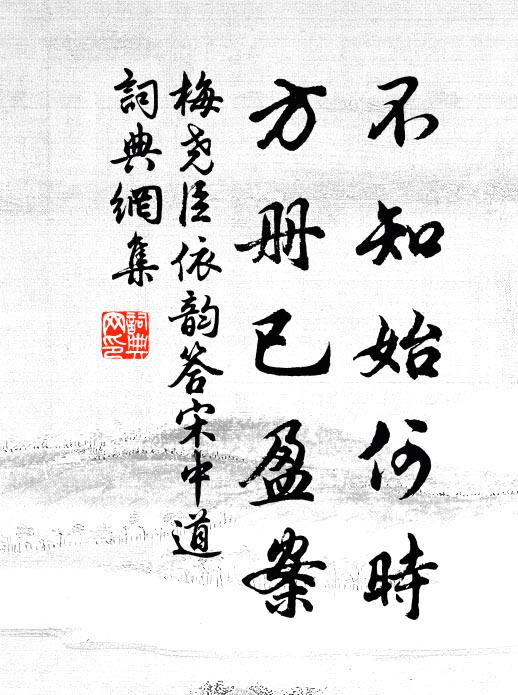 不知始何時
方册已盈案
梅尧臣依韵答宋中道
詞典網集
詞典网印